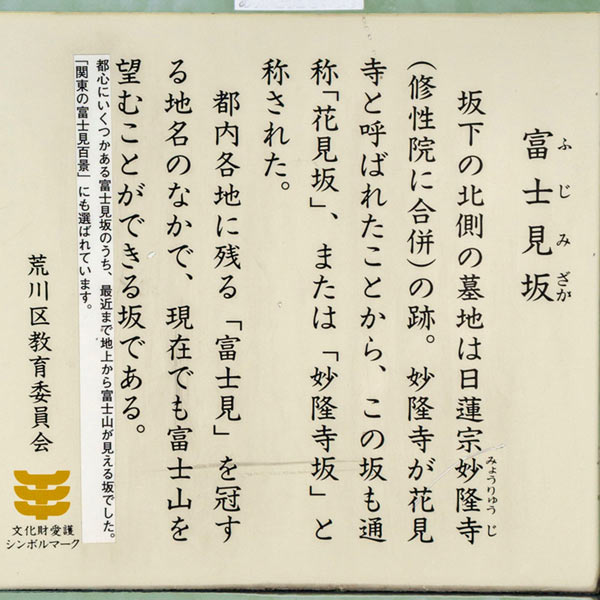 富士見坂
ふじみざか
坂下の北側の墓地は日蓮宗妙隆寺
みょうりゅうじ
(修性院に合併)の跡。妙隆寺が花見
寺と呼ばれたことから、この坂も通
称「花見坂」、または「妙隆寺坂」と
称された。
都内各地に残る「富士見」を冠す
る地名のなかで、現在でも富士山を
望むことができる坂である。
都心にいくつかある富士見坂のうち、最近まで地上から富士山が見える坂でした。
「関東の富士見百景」にも選ばれています。
荒川区教育委員会
文化財愛護
シンボルマーク